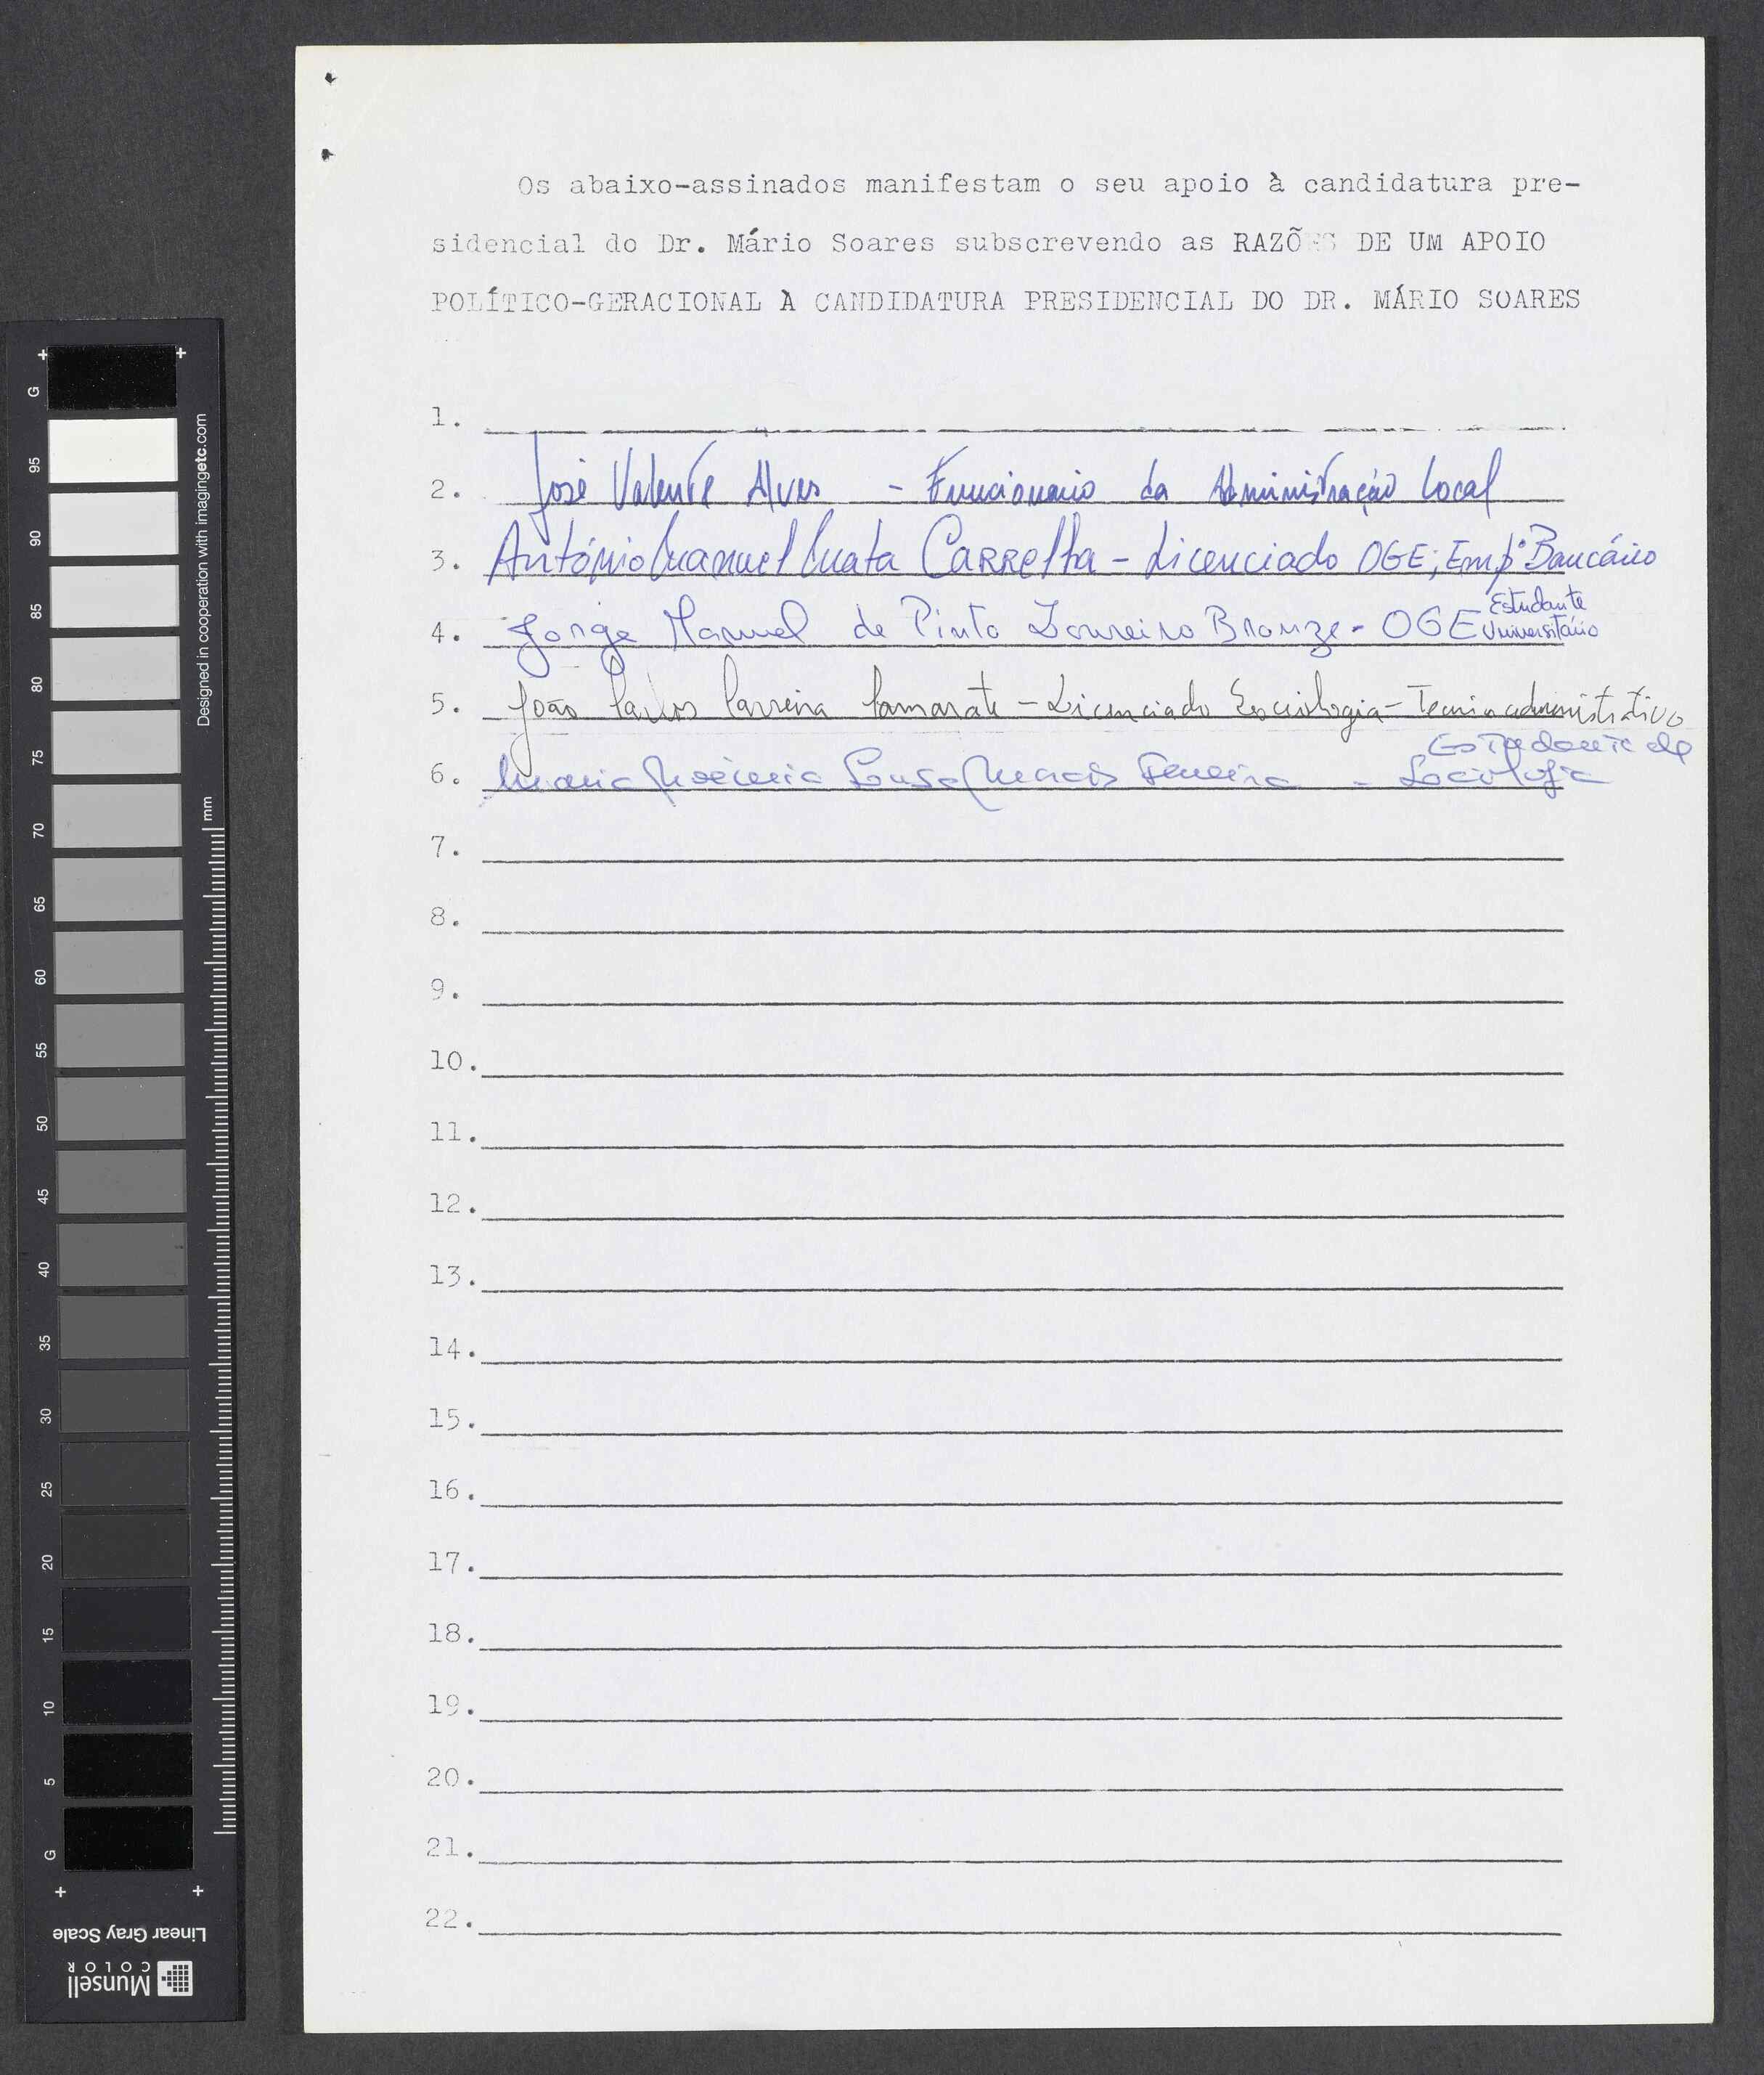 Os abaixo-assinados manifestam o seu apoio à candidatura pre-
sidencial do Dr. Mário Soares subscrevendo as RAZÕES DE UM APOIO
POLÍTICO-GERACIONAL À CANDIDATURA PRESIDENCIAL DO DR. MÁRIO SOARES
1.
2. José Valente Alves - Funcionario da Administração Local
3. António Manuel Mata CARRelha - Licenciado OGE; Empº Bancário
4. Jorge Manuel de Pinto Loureiro Bronze - OGE Estudante
Universitário
5. João Carlos Carreira Camarate - Licenciado Sociologia - Tecnico administrativo
Estudante de
6. Maria Noémia Sousa Ferreira - Sociologia
7.
8.
9.
10.
11.
12.
13.
14.
15.
16.
17.
18.
19.
20.
21.
22.
G
95
90
85
80
75
70
65
60
55
50
45
40
35
30
25
20
15
10
5
G
mm
Designed in cooperation with imagingetc.com
Linear Gray Scale
Munsell
COLOR